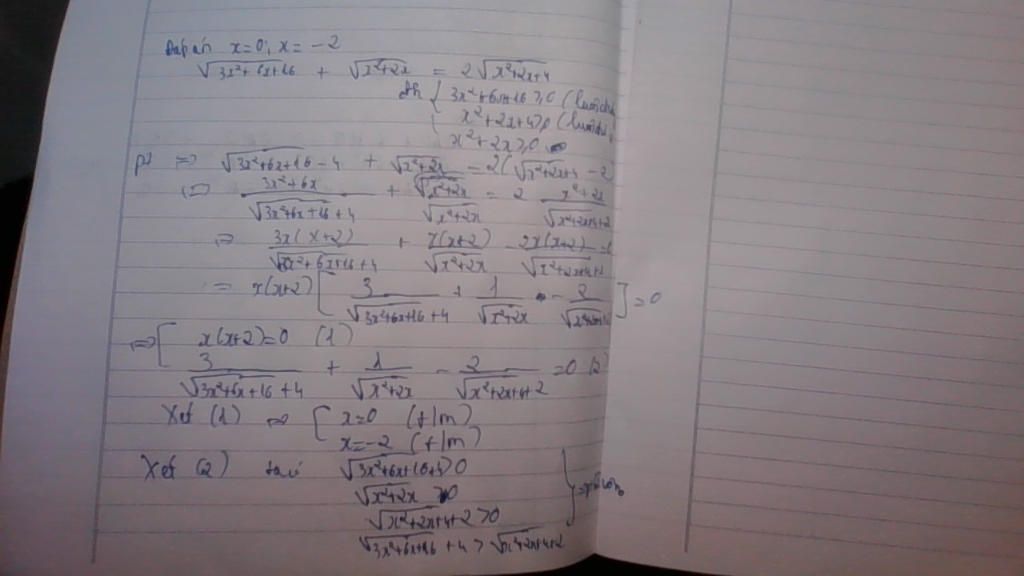 Đáp án x=0; x= -2
√(3x²+6x+16) + √(x²+2x) = 2√(x²+2x+4)
đk { 3x²+6x+16 ≥ 0 (luôn
x²+2x+4 ≥ 0 (luôn
x²+2x ≥ 0
pt ⇔ √(3x²+6x+16) - 4 + √(x²+2x) = 2(√(x²+2x+4) - 2
⇔ (3x²+6x)/(√(3x²+6x+16)+4) + (√(x²+2x))/(√(x²+2x)) = 2 (x²+2x)/(√(x²+2x+4)+2)
⇔ (3x(x+2))/(√(3x²+6x+16)+4) + (x(x+2))/(√(x²+2x)) - (2x(x+2))/(√(x²+2x+4)+2) =
= x(x+2) [ 3/(√(3x²+6x+16)+4) + 1/(√(x²+2x)) - 2/(√(x²+2x+4)+2) ] = 0
⇔ [ x(x+2)=0 (1)
3/(√(3x²+6x+16)+4) + 1/(√(x²+2x)) - 2/(√(x²+2x+4)+2) = 0 (2)
Xét (1) ⇔ [ x=0 (t/m)
x=-2 (t/m)
Xét (2) ta có √(3x²+6x+16)+4 > 0
√(x²+2x) > 0
√(x²+2x+4)+2 > 0
√(3x²+6x+16) + 4 > √(x²+2x+4)+2